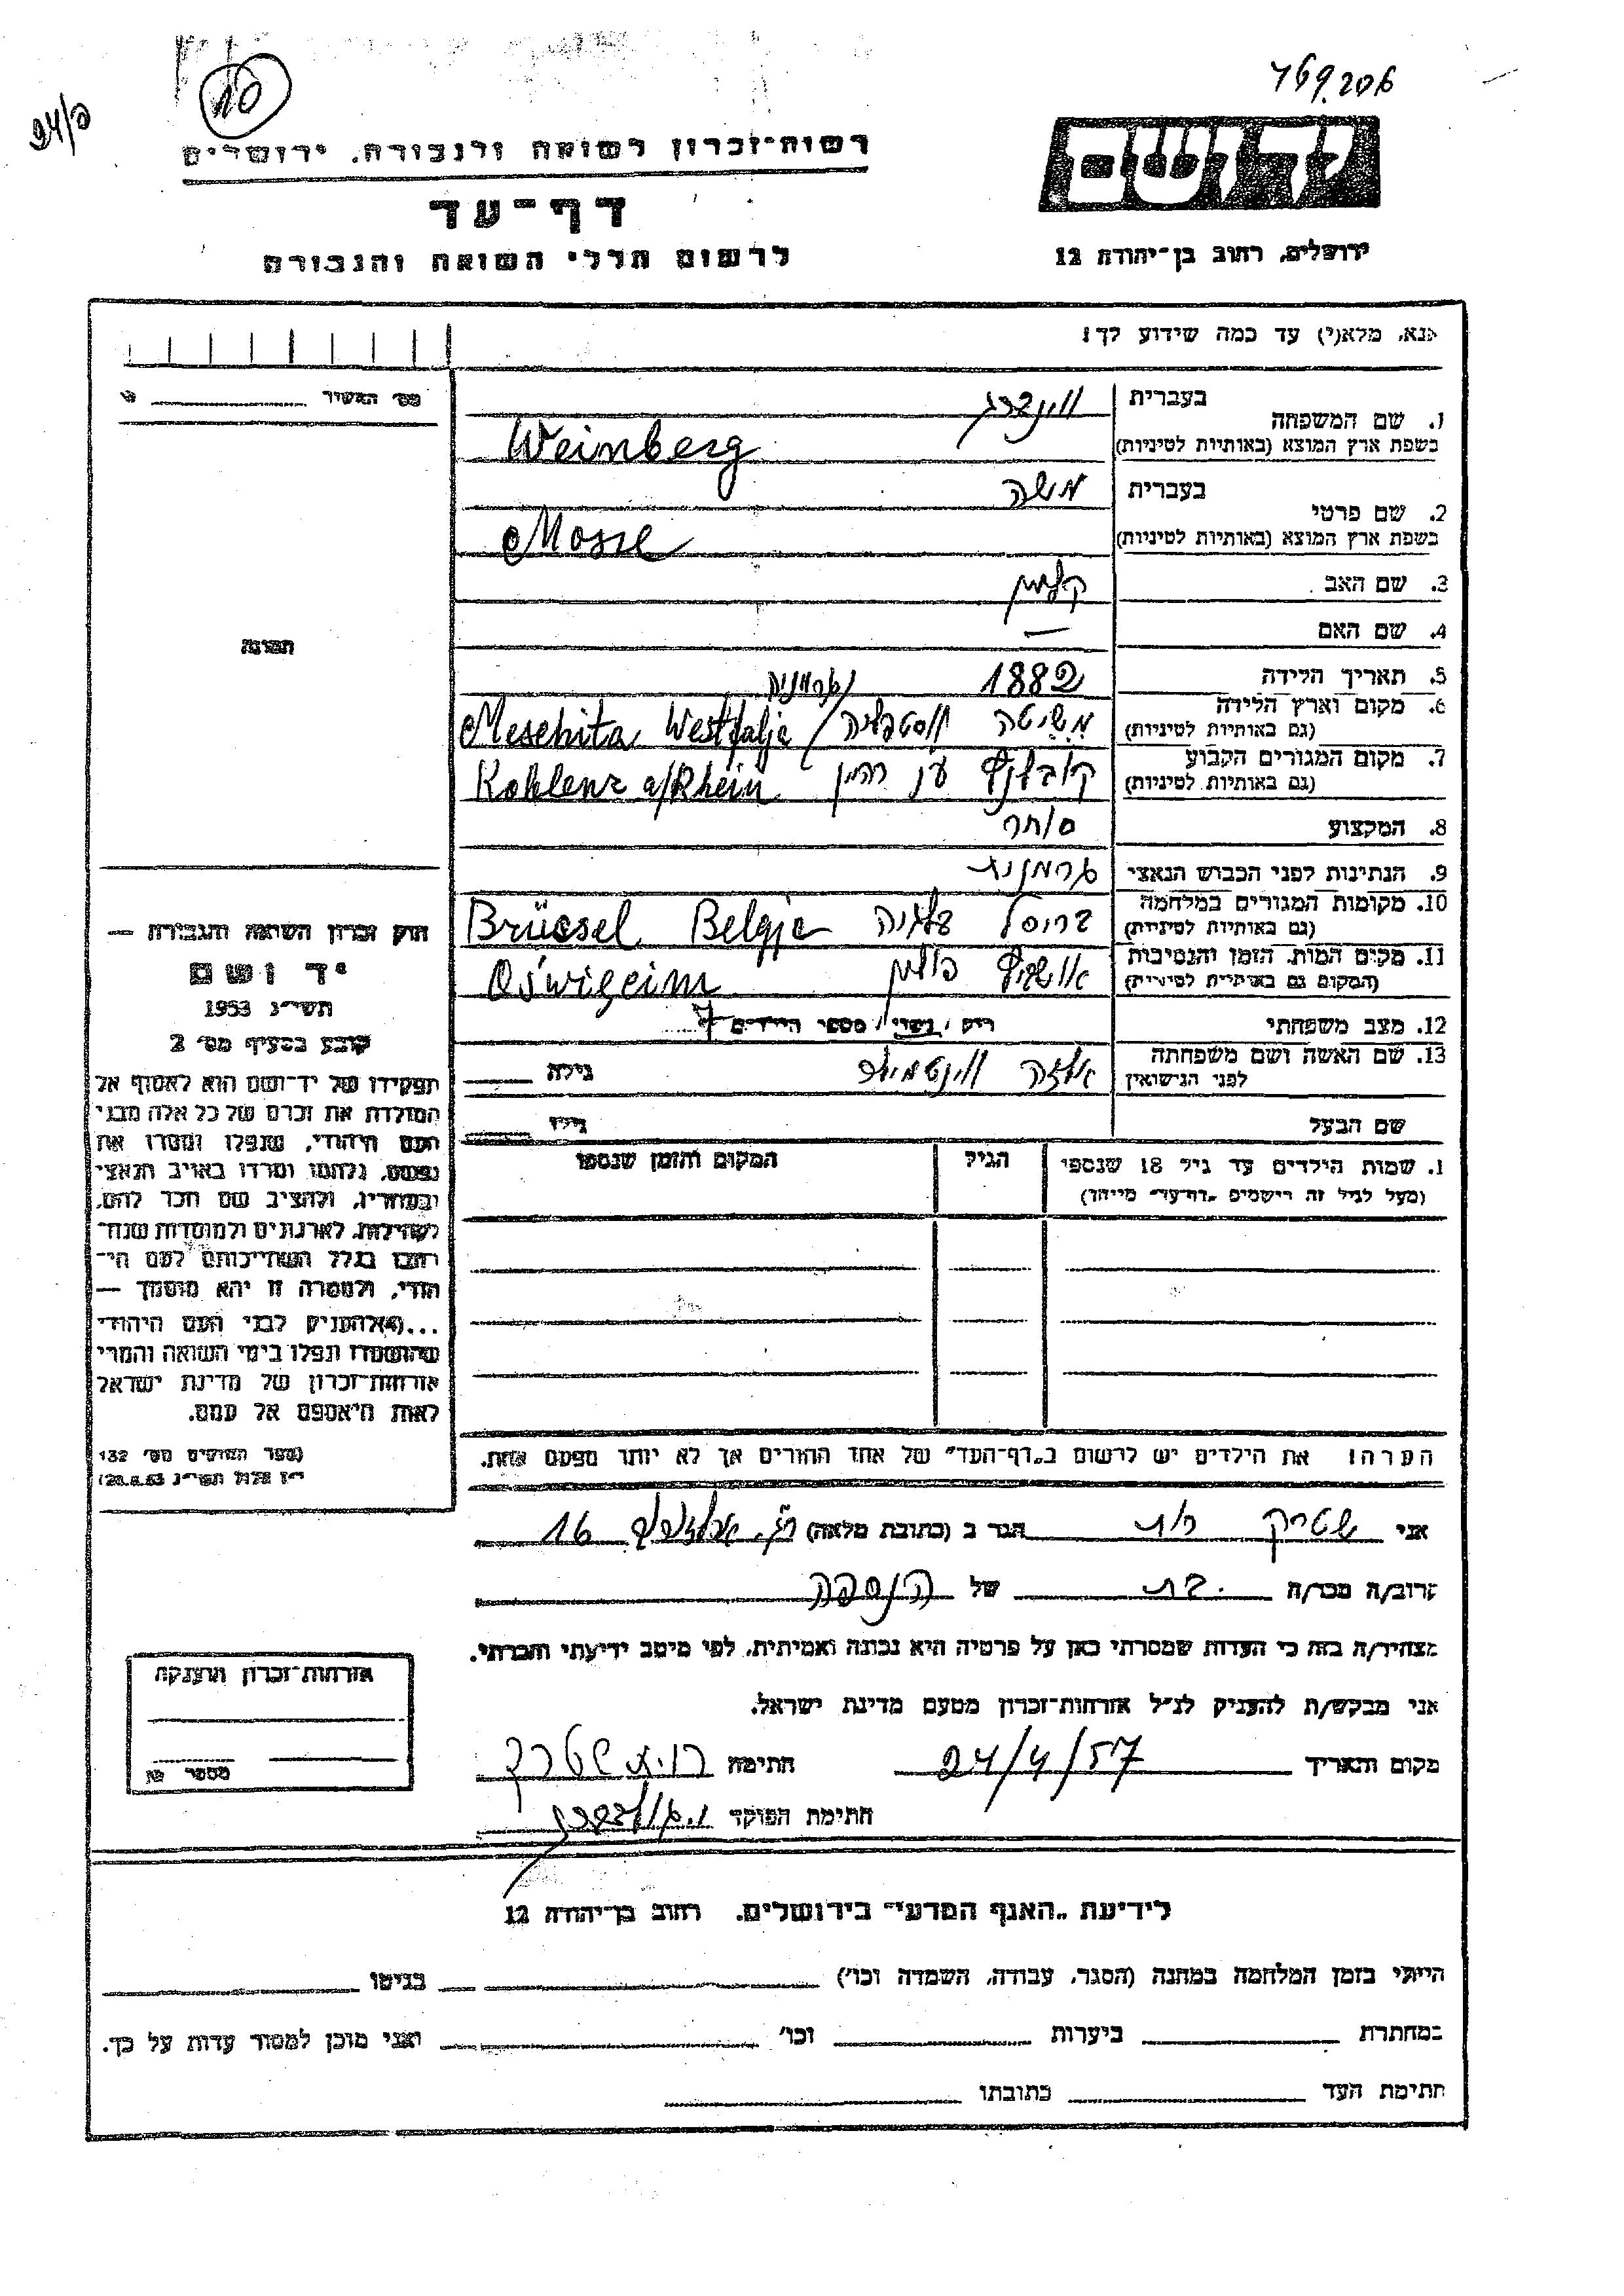 769.206
94/פ
10
רשות-זכרון לשואה ולגבורה, ירושלים
יד ושם
דף-עד
לרשום חללי השואה והגבורה
ירושלים, רחוב בן-יהודה 12
נא, מלא(י) עד כמה שידוע לך!
1. שם המשפחה בעברית וינברג
בשפת ארץ המוצא (באותיות לטיניות) Weinberg
2. שם פרטי בעברית משה
בשפת ארץ המוצא (באותיות לטיניות) Mosse
3. שם האב קלמן
4. שם האם —
5. תאריך הלידה 1882
6. מקום וארץ הלידה גרמניה
(גם באותיות לטיניות) משיטה ווסטפליה / Meschita Westfalje
7. מקום המגורים הקבוע
(גם באותיות לטיניות) קובלנץ ען רהיין Koblenz a/Rhein
8. המקצוע סוחר
9. הנתינות לפני הכבוש הנאצי גרמנית
10. מקומות המגורים במלחמה
(גם באותיות לטיניות) בריסל בלגיה Brücsel Belgje
11. מקום המות, הזמן והנסיבות
(המקום גם באותיות לטיניות) אושויץ פולין Oświęcim
12. מצב משפחתי רוק / נשוי / מספר הילדים 7
13. שם האשה ושם משפחתה
לפני הנישואין גילה
שם הבעל גילו
1. שמות הילדים עד גיל 18 שנספו הגיל המקום והזמן שנספו
(מעל לגיל זה רישמים "דף-עד" מיוחד)
הערה: את הילדים יש לרשום ב"דף-העד" של אחד ההורים אך לא יותר מפעם אחת.
אני שטרק רות הגר ב (כתובת מלאה) 16
קרוב/ה מכר/ה בת של הנספה
מצהיר/ה בזה כי העדות שמסרתי כאן על פרטיה היא נכונה ואמיתית, לפי מיטב ידיעתי והכרתי.
אני מבקש/ת להעניק לנ"ל אזרחות-זכרון מטעם מדינת ישראל.
מקום ותאריך 24/4/57 חתימה שטרק
חתימת הפוקד
מס' האשיר
תמונה
חוק זכרון השואה והגבורה —
יד ושם
תשי"ג 1953
קובע בסעיף מס' 2
תפקידו של יד-ושם הוא לאסוף אל
המולדת את זכרם של כל אלה מבני
העם היהודי, שנפלו ומסרו את
נפשם, נלחמו ומרדו באויב הנאצי
ובעוזריו, ולהציב שם וזכר להם,
לקהילות, לארגונים ולמוסדות שנח-
רבו בגלל השתייכותם לעם הי-
הודי, ולמטרה זו יהא מוסמך —
...(4) להעניק לבני העם היהודי
שהושמדו ונפלו בימי השואה והמרי
אזרחות-זכרון של מדינת ישראל
לאות היאספם אל עמם.
(ספר החוקים מס' 132
י"ז אלול תשי"ג 28.8.53)
אזרחות-זכרון הוענקה
מספר
לידיעת "האגף המדעי" בירושלים, רחוב בן-יהודה 12
הייתי בזמן המלחמה במחנה (הסגר, עבודה, השמדה וכו') בגיטו
במחתרת ביערות וכו' ואני מוכן למסור עדות על כך.
חתימת העד כתובתו